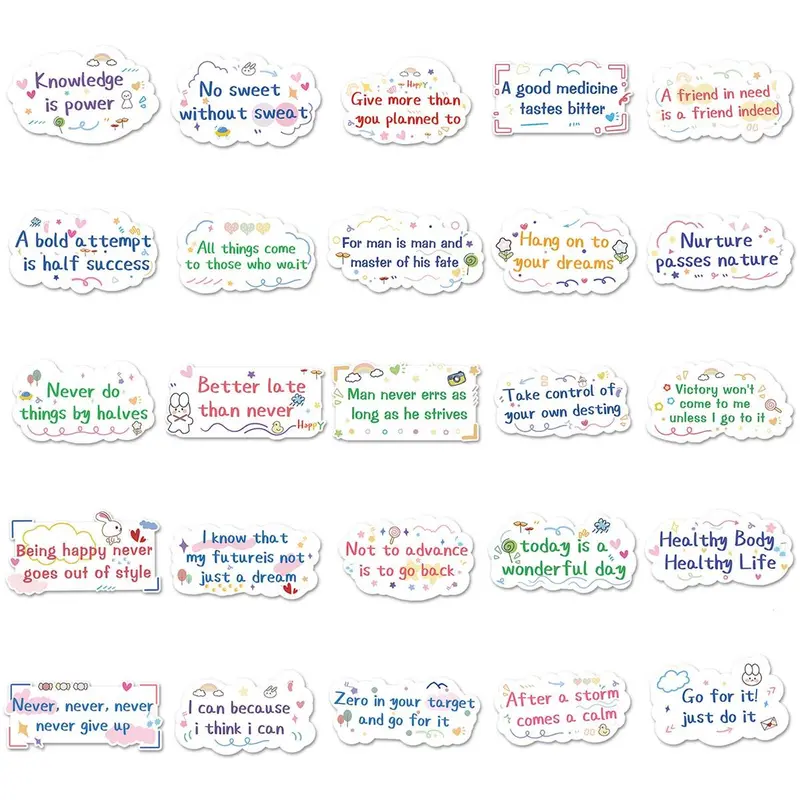 Knowledge
is power
No sweet
without sweat
Happy
Give more than
you planned to
A good medicine
tastes bitter
A friend in need
is a friend indeed
A bold attempt
is half success
All things come
to those who wait
For man is man and
master of his fate
Hang on to
your dreams
Nurture
passes nature
Never do
things by halves
Better late
than never
Happy
Man never errs as
long as he strives
Take control of
your own desting
Victory won't
come to me
unless I go to it
Being happy never
goes out of style
I know that
my futureis not
just a dream
Not to advance
is to go back
today is a
wonderful day
Healthy Body
Healthy Life
Never, never, never
never give up
I can because
i think i can
Zero in your target
and go for it
After a storm
comes a calm
Go for it!
just do it